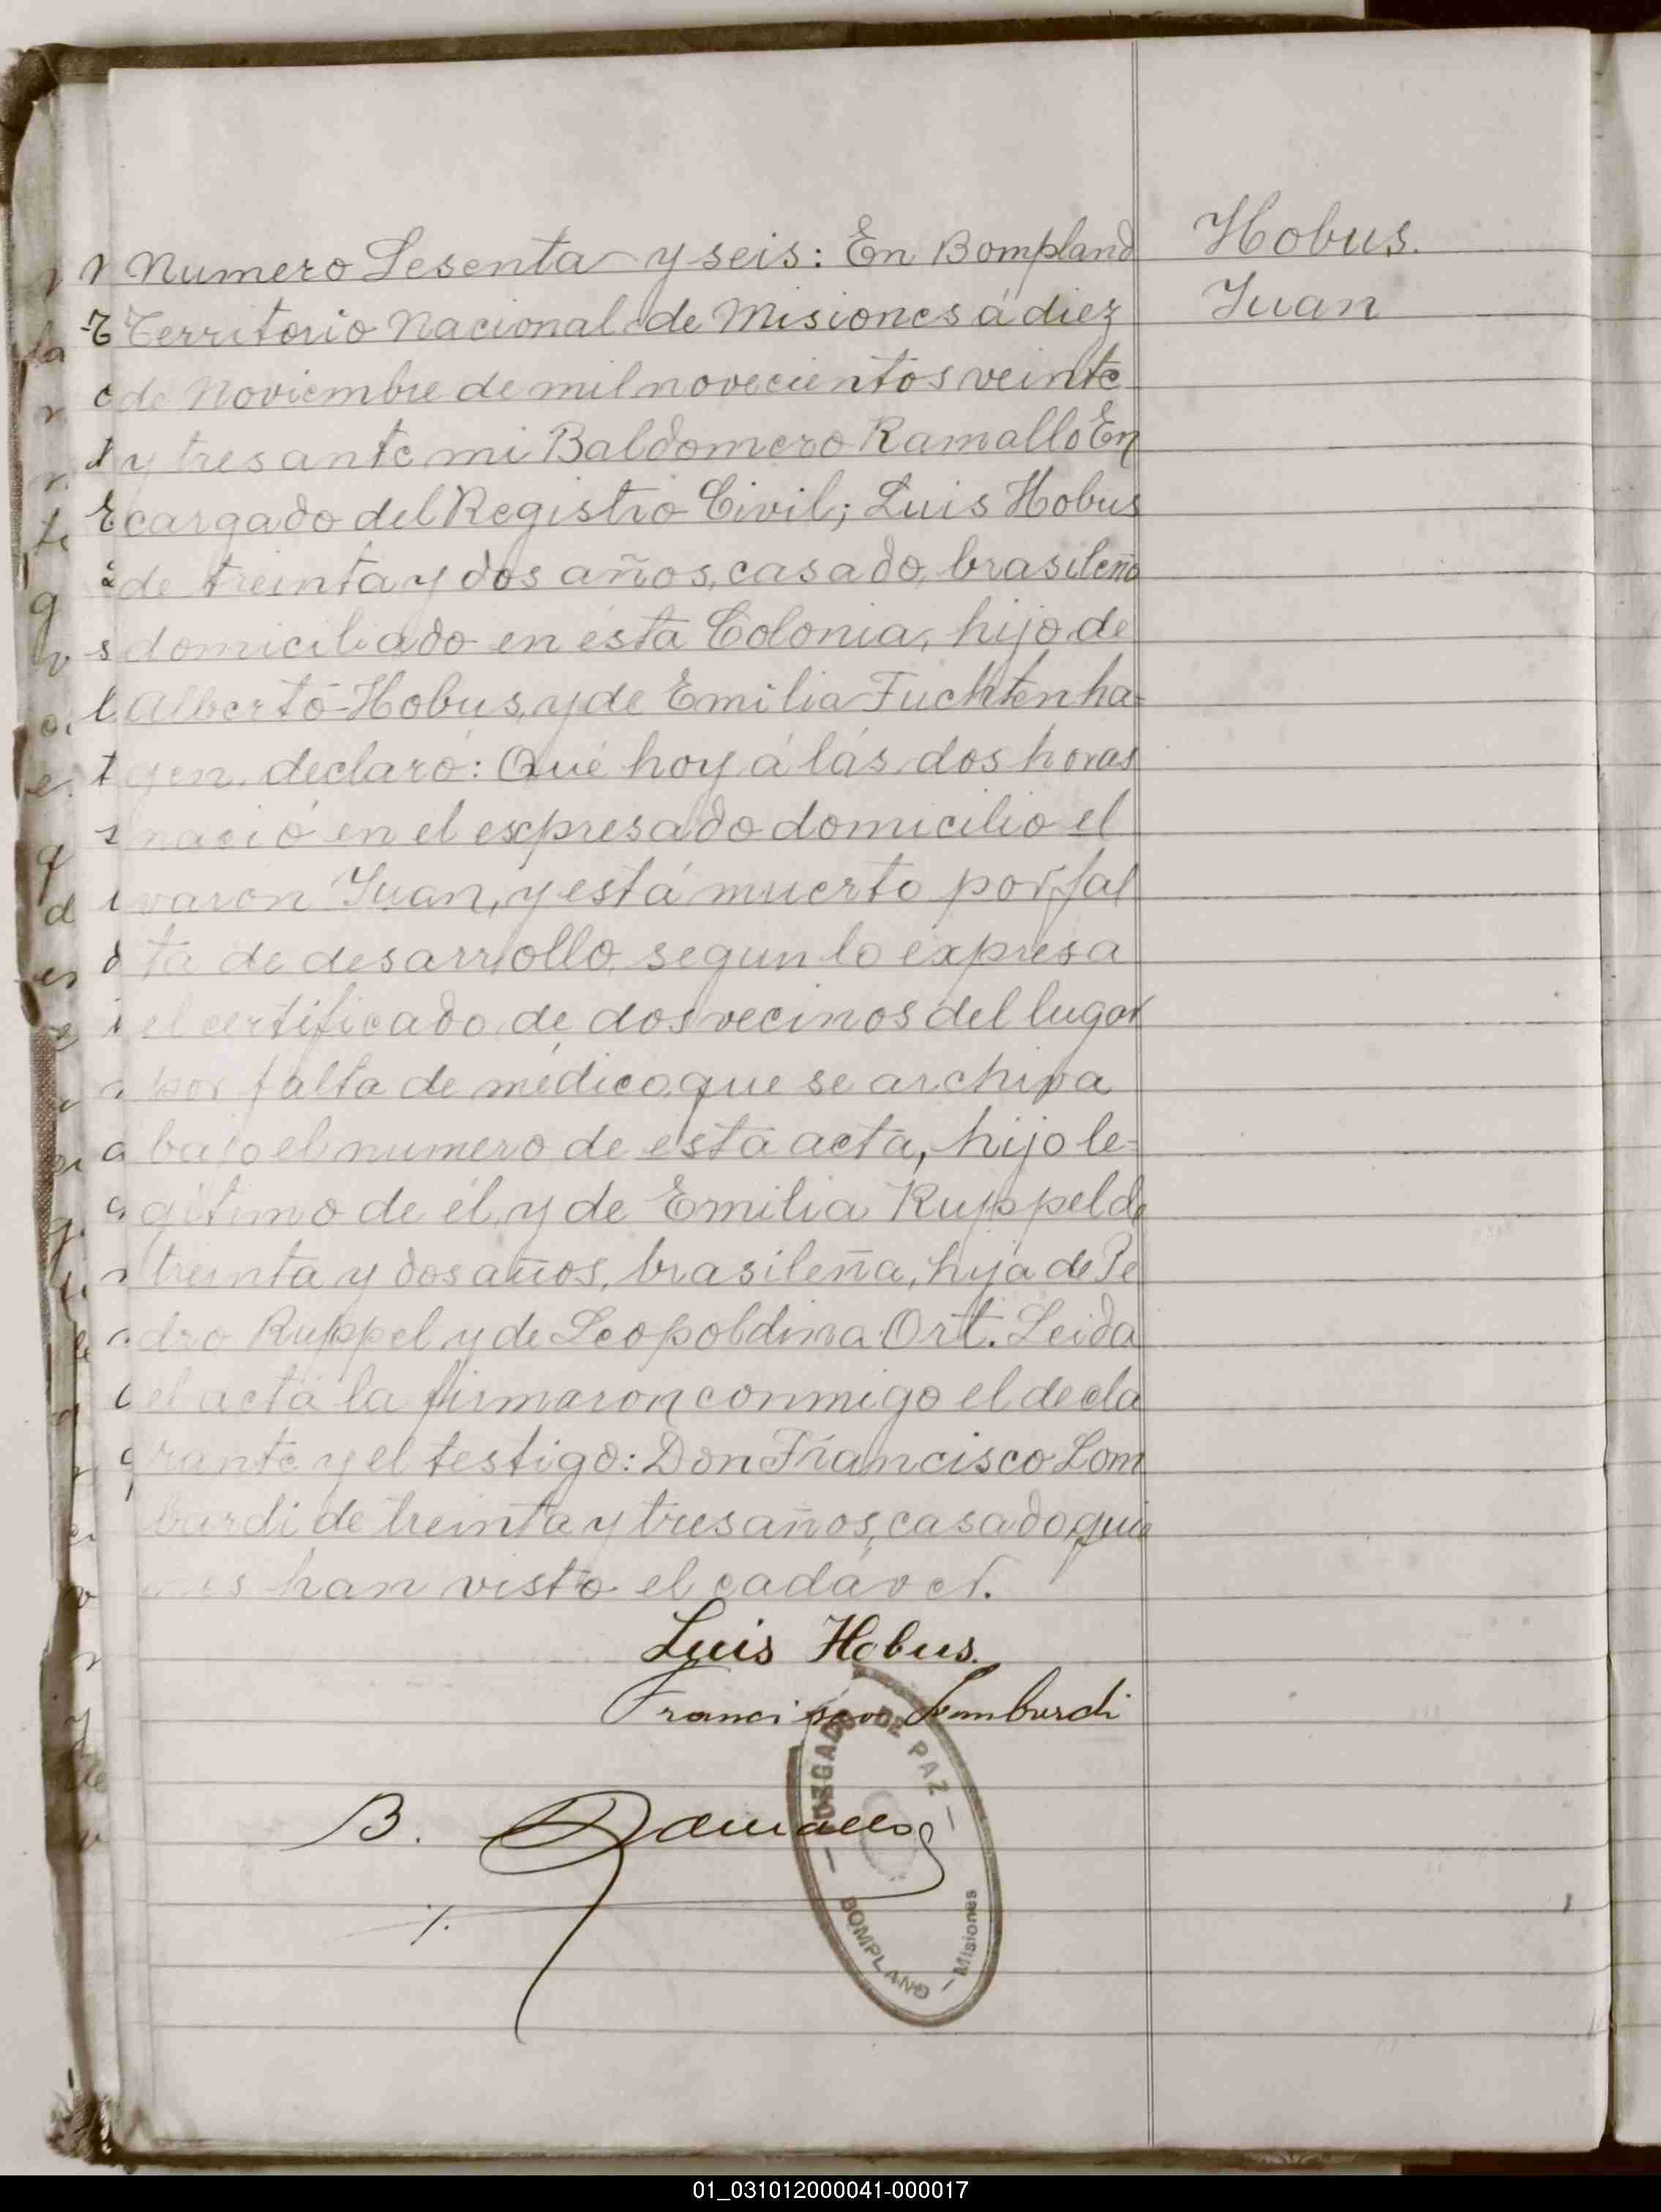 Numero Sesenta y seis: En Bompland
Territorio Nacional de Misiones á diez
de Noviembre de mil novecientos veinte
y tres ante mi Baldomero Ramallo En
cargado del Registro Civil; Luis Hobus
de treinta y dos años, casado, brasileño
domiciliado en ésta Colonia, hijo de
Alberto Hobus, y de Emilia Fuchtenha-
gen, declaró: Qué hoy á lás dos horas
nació en el expresado domicilio el
varon Juan, y está muerto por fal
ta de desarrollo, segun lo expresa
el certificado de dos vecinos del lugar
por falta de médico, que se archiva
bajo el numero de esta acta, hijo le=
gitimo de él, y de Emilia Ruppel de
treinta y dos años, brasileña, hija de Pe
dro Ruppel y de Leopoldina Ort. Leida
el acta la firmaron conmigo el decla
rante y el testigo: Don Francisco Lom
bardi de treinta y tres años, casado, quie
nes han visto el cadáver.
Luis Hobus.
Francisco Lombardi
B. Ramallo
JUZGADO DE PAZ
BOMPLAND - Misiones
Hobus.
Juan
01_031012000041-000017